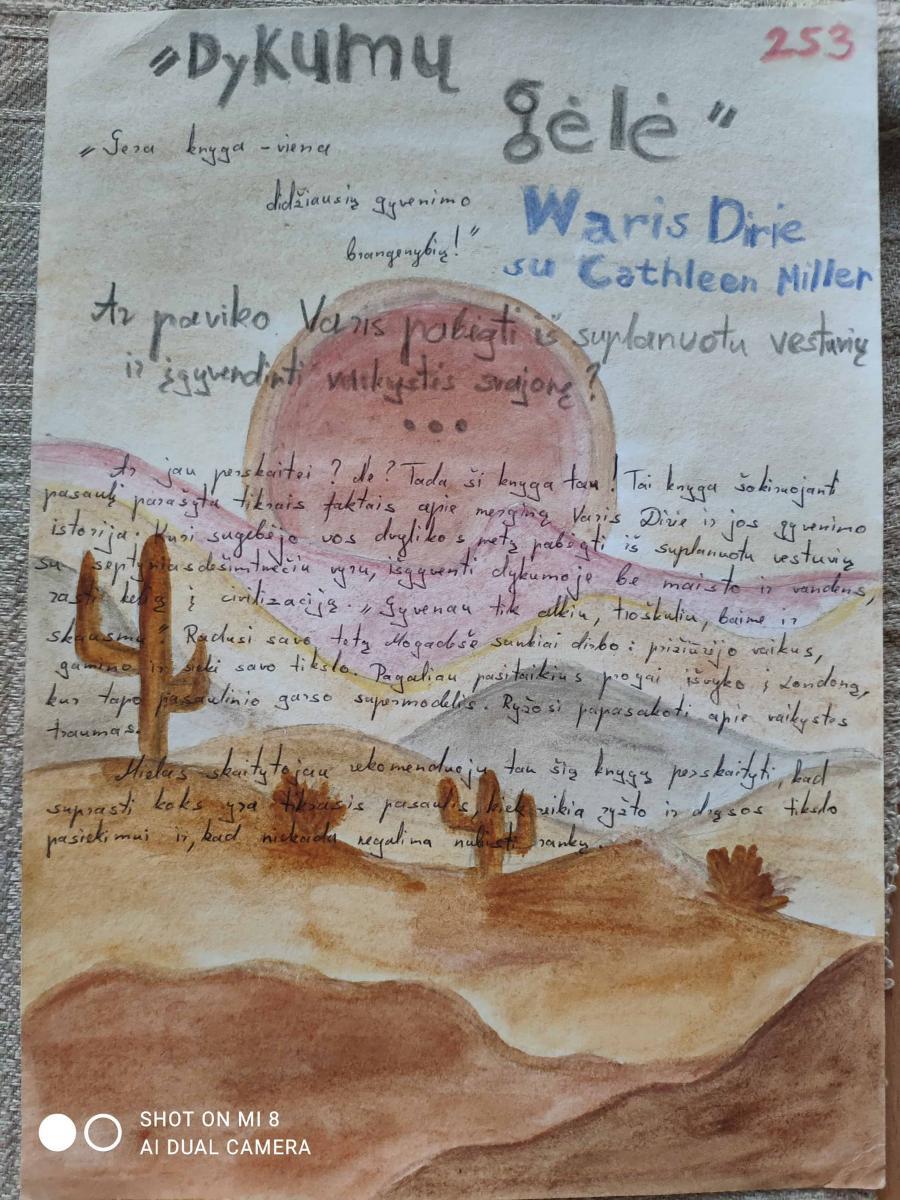 „Dykumų
gėlė"
253
„Gera knyga - viena
didžiausių gyvenimo
brangenybių!"
Waris Dirie
su Cathleen Miller
Ar paviko Varis pabėgti iš suplanuotu vestuvių
ir įgyvendinti vaikystės svajonę?
...
Ar jau perskaitei? Ne? Tada ši knyga tau! Tai knyga šokiruojanti
pasaulį parašyta tikrais faktais apie merginą Varis Dirie ir jos gyvenimo
istorija. Kuri sugebėjo vos dvylikos metų pabėgti iš suplanuotu vestuvių
su septyniasdešimtmečiu vyru, išgyventi dykumoje be maisto ir vandens,
rasti kelią į civilizaciją. „Gyvenau tik alkiu, troškuliu, baime ir
skausmu" Radusi savo tetą Mogadiše sunkiai dirbo: prižiūrėjo vaikus,
gamino ir siekė savo tikslo. Pagaliau pasitaikius progai išvyko į Londoną,
kur tapo pasaulinio garso supermodelis. Ryžosi papasakoti apie vaikystės
traumas.
Mielas skaitytojau rekomenduoju tau šią knygą perskaityti, kad
suprasti koks yra tikrasis pasaulis, kiek reikia ryžto ir drąsos tikslo
pasiekimui ir, kad niekada negalima nuleisti rankų.
SHOT ON MI 8
AI DUAL CAMERA